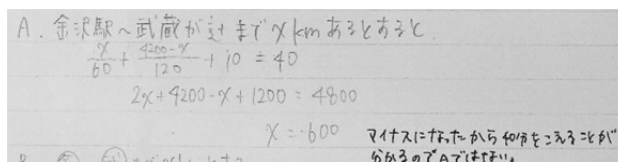 A. 金沢駅〜武蔵が辻までxkmあるとすると
x/60 + 4200-x/120 + 10 = 40
2x+4200-x+1200=4800
x=-600 マイナスになったから40分をこえることが
分かるのでAではない。